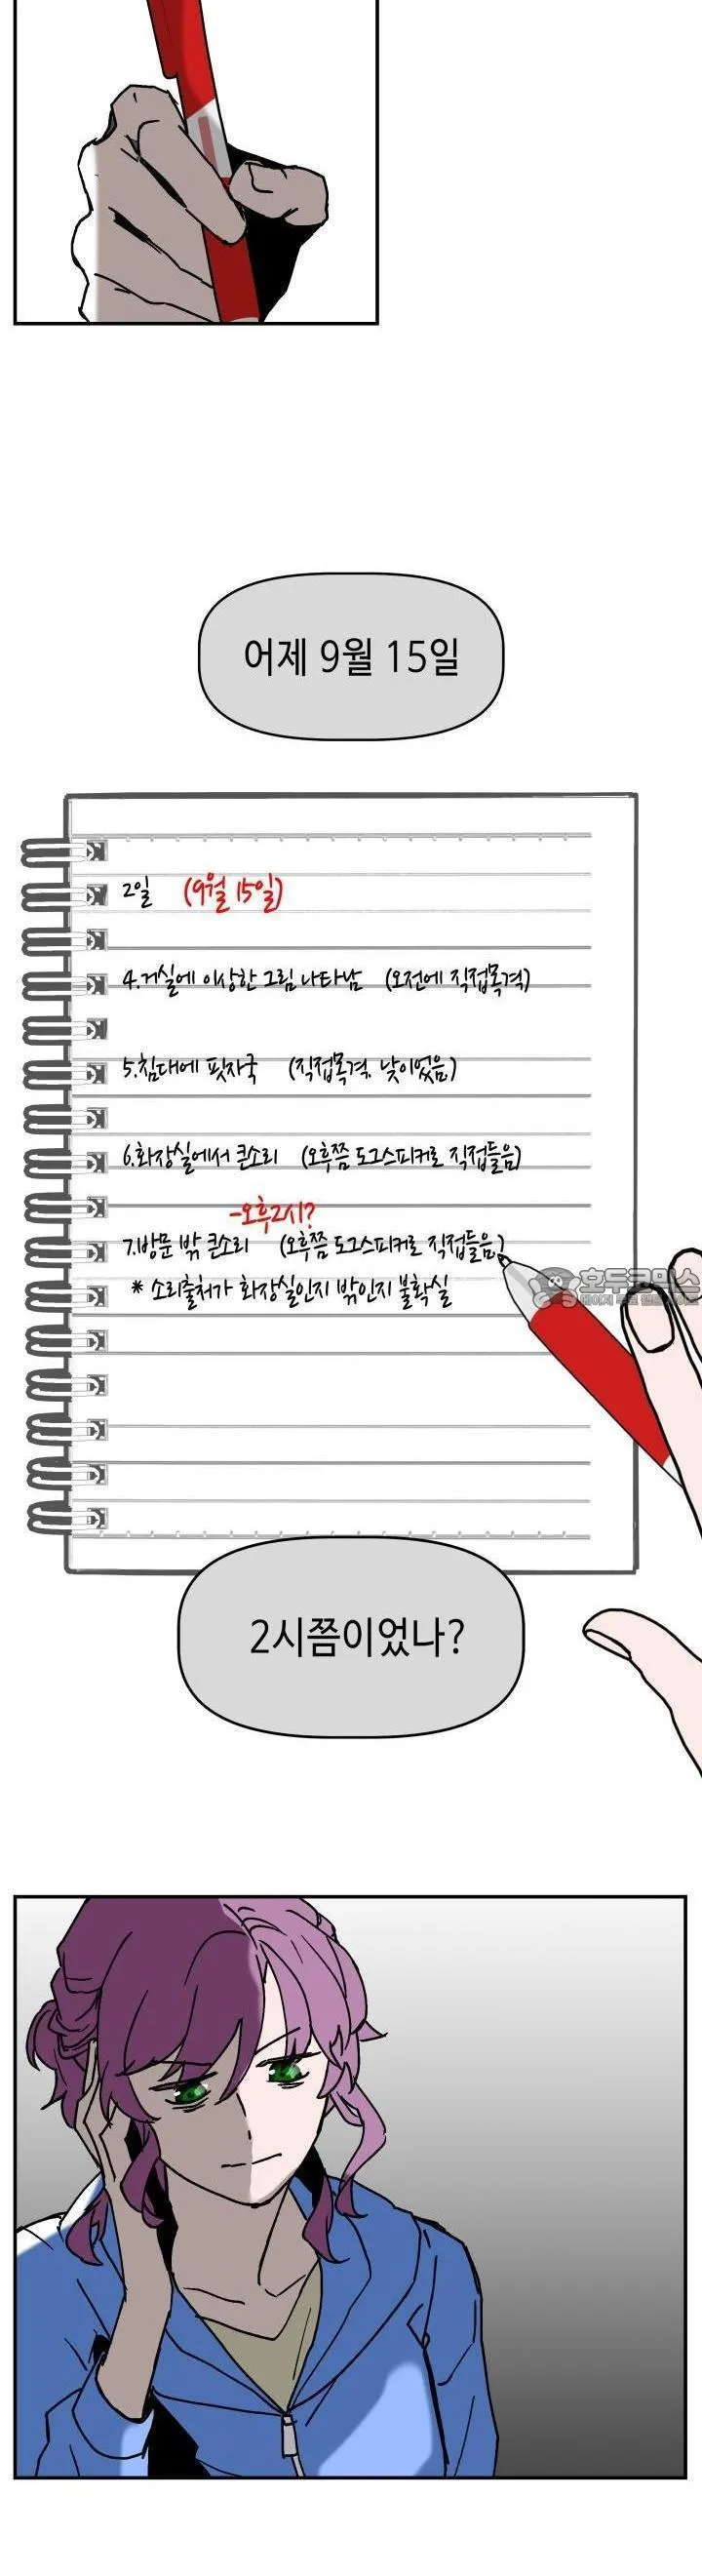 어제 9월 15일
2일 (9월 15일)
4.거실에 이상한 그림 나타남 (오전에 직접목격)
5.침대에 핏자국 (직접목격. 낮이었음)
6.화장실에서 큰소리 (오후쯤 도그스피커로 직접들음)
-오후2시?
7.방문 밖 큰소리 (오후쯤 도그스피커로 직접들음)
* 소리출처가 화장실인지 밖인지 불확실
호두코믹스
2시쯤이었나?